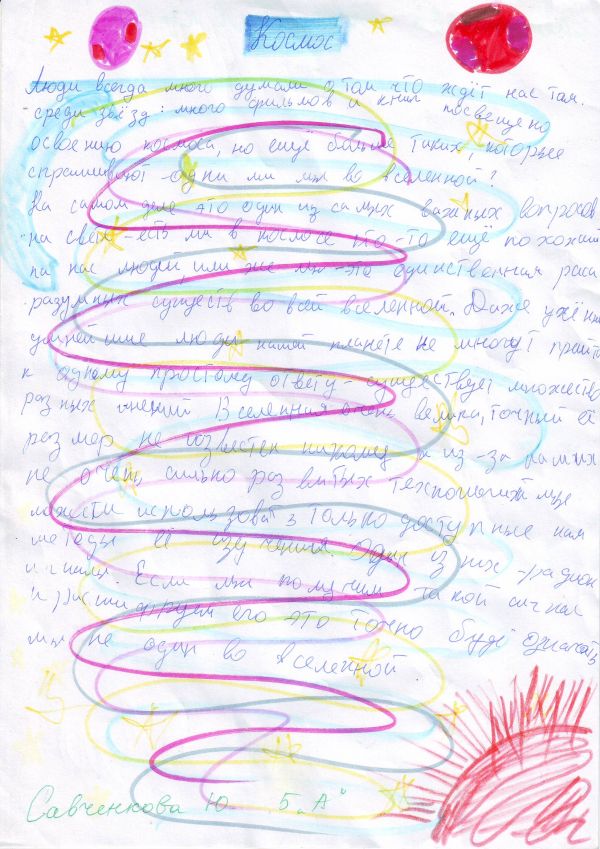 Космос
Люди всегда много думали о том что ждёт нас там.
-среди звёзд: много фильмов и книг посвещено
освоению космоса, но ещё больше таких, которые
спрашивают -одни ли мы во вселенной?
На самом деле это один из самых важных вопросов
на свете -есть ли в космосе кто-то ещё похожий
на нас людей, или же мы -это единственная раса
разумных существ во всей вселенной. Даже учёные
умнейшие люди нашей планете не могут прийти
к одному простому ответу- существует множество
разных мнений Вселенная очень велика, точный её
размер не известен никому а из-за наших
не очень сильно развитых технологий мы
можем использовать только доступные нам
методы её изучения. Один из них -радио
сигналы. Если мы получим такой сигнал
и его это точно будет означать
мы не один во вселенной.
Савченкова Ю. 5 „А"